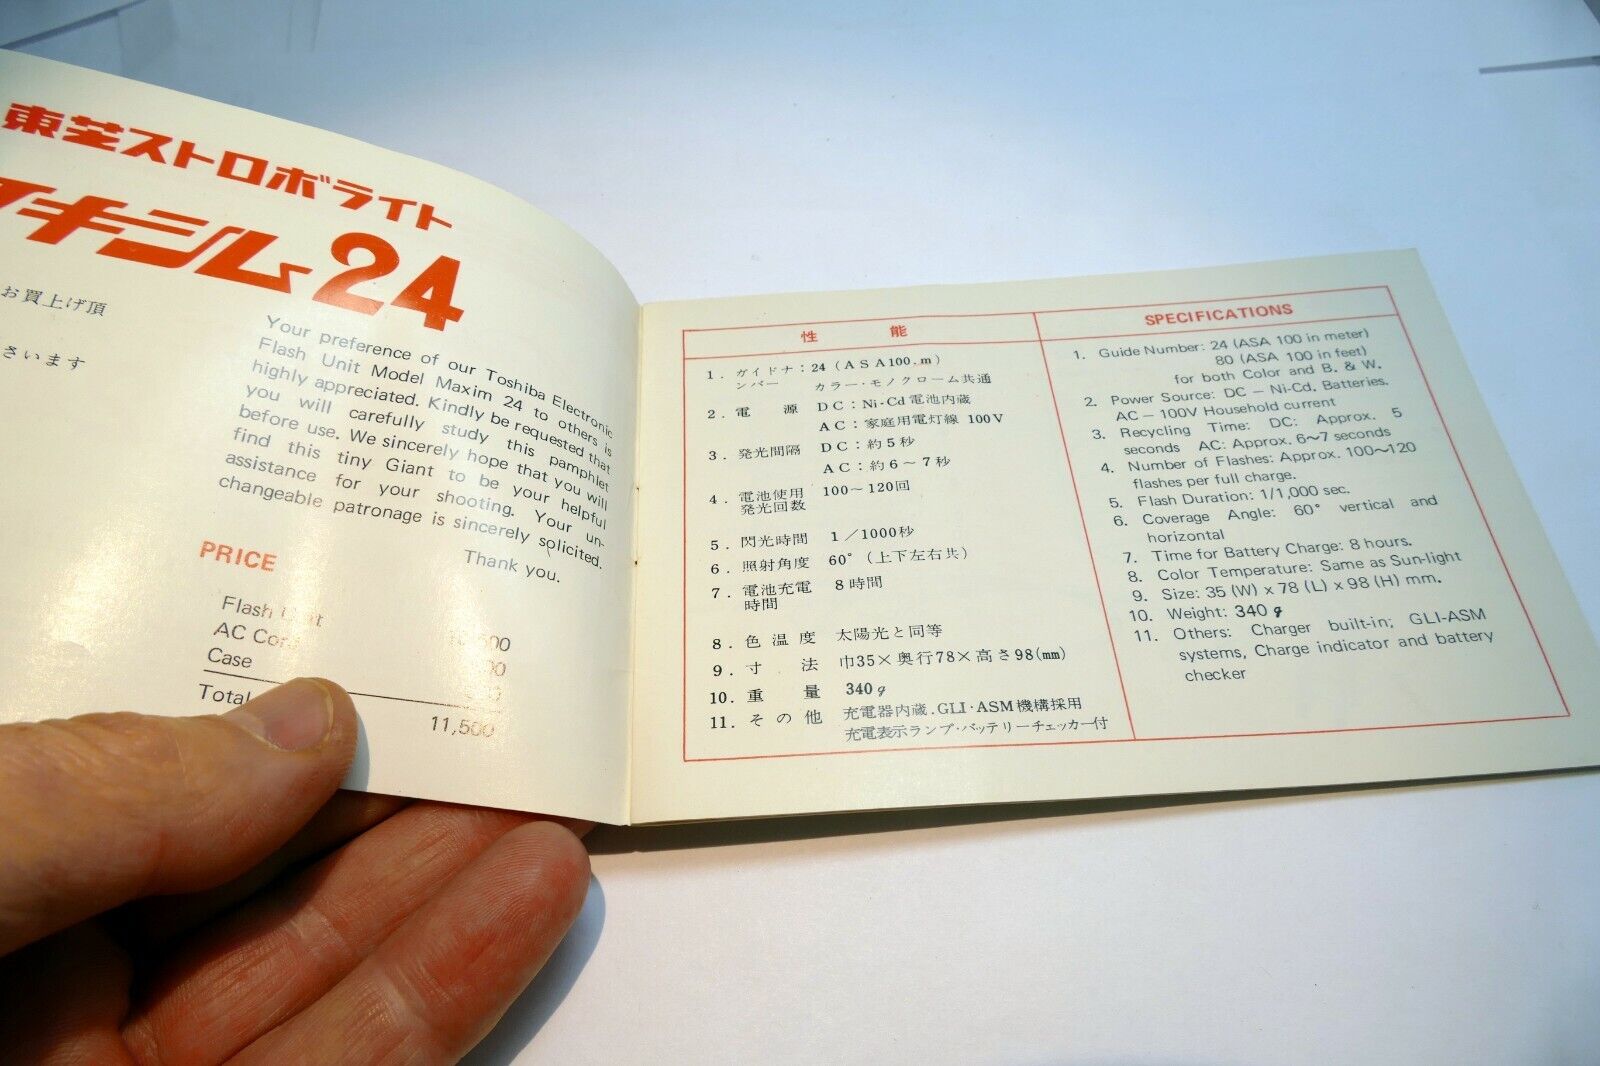 東芝ストロボライト
マキシム24
お買上げ頂
さいます
Your preference of our Toshiba Electronic
Flash Unit Model Maxim 24 to others is
highly appreciated. Kindly be requested that
you will carefully study this pamphlet
before use. We sincerely hope that you will
find this tiny Giant to be your helpful
assistance for your shooting. Your un-
changeable patronage is sincerely solicited.
Thank you.
PRICE
Flash Unit
AC Cord
Case
Total
11,500
性 能
1. ガイドナ : 24 (ASA100.m)
ンバー カラー・モノクローム共通
2. 電 源 DC : Ni-Cd電池内蔵
AC : 家庭用電灯線 100V
3. 発光間隔 DC : 約5秒
AC : 約6~7秒
4. 電池使用 100~120回
発光回数
5. 閃光時間 1/1000秒
6. 照射角度 60° (上下左右共)
7. 電池充電 8時間
時間
8. 色温度 太陽光と同等
9. 寸 法 巾35×奥行78×高さ98(mm)
10. 重 量 340g
11. その他 充電器内蔵.GLI・ASM機構採用
充電表示ランプ・バッテリーチェッカー付
SPECIFICATIONS
1. Guide Number: 24 (ASA 100 in meter)
80 (ASA 100 in feet)
for both Color and B. & W.
2. Power Source: DC – Ni-Cd. Batteries.
AC – 100V Household current
3. Recycling Time: DC: Approx. 5
seconds AC: Approx. 6~7 seconds
4. Number of Flashes: Approx. 100~120
flashes per full charge.
5. Flash Duration: 1/1,000 sec.
6. Coverage Angle: 60° vertical and
horizontal
7. Time for Battery Charge: 8 hours.
8. Color Temperature: Same as Sun-light
9. Size: 35 (W) x 78 (L) x 98 (H) mm.
10. Weight: 340 g
11. Others: Charger built-in; GLI-ASM
systems, Charge indicator and battery
checker